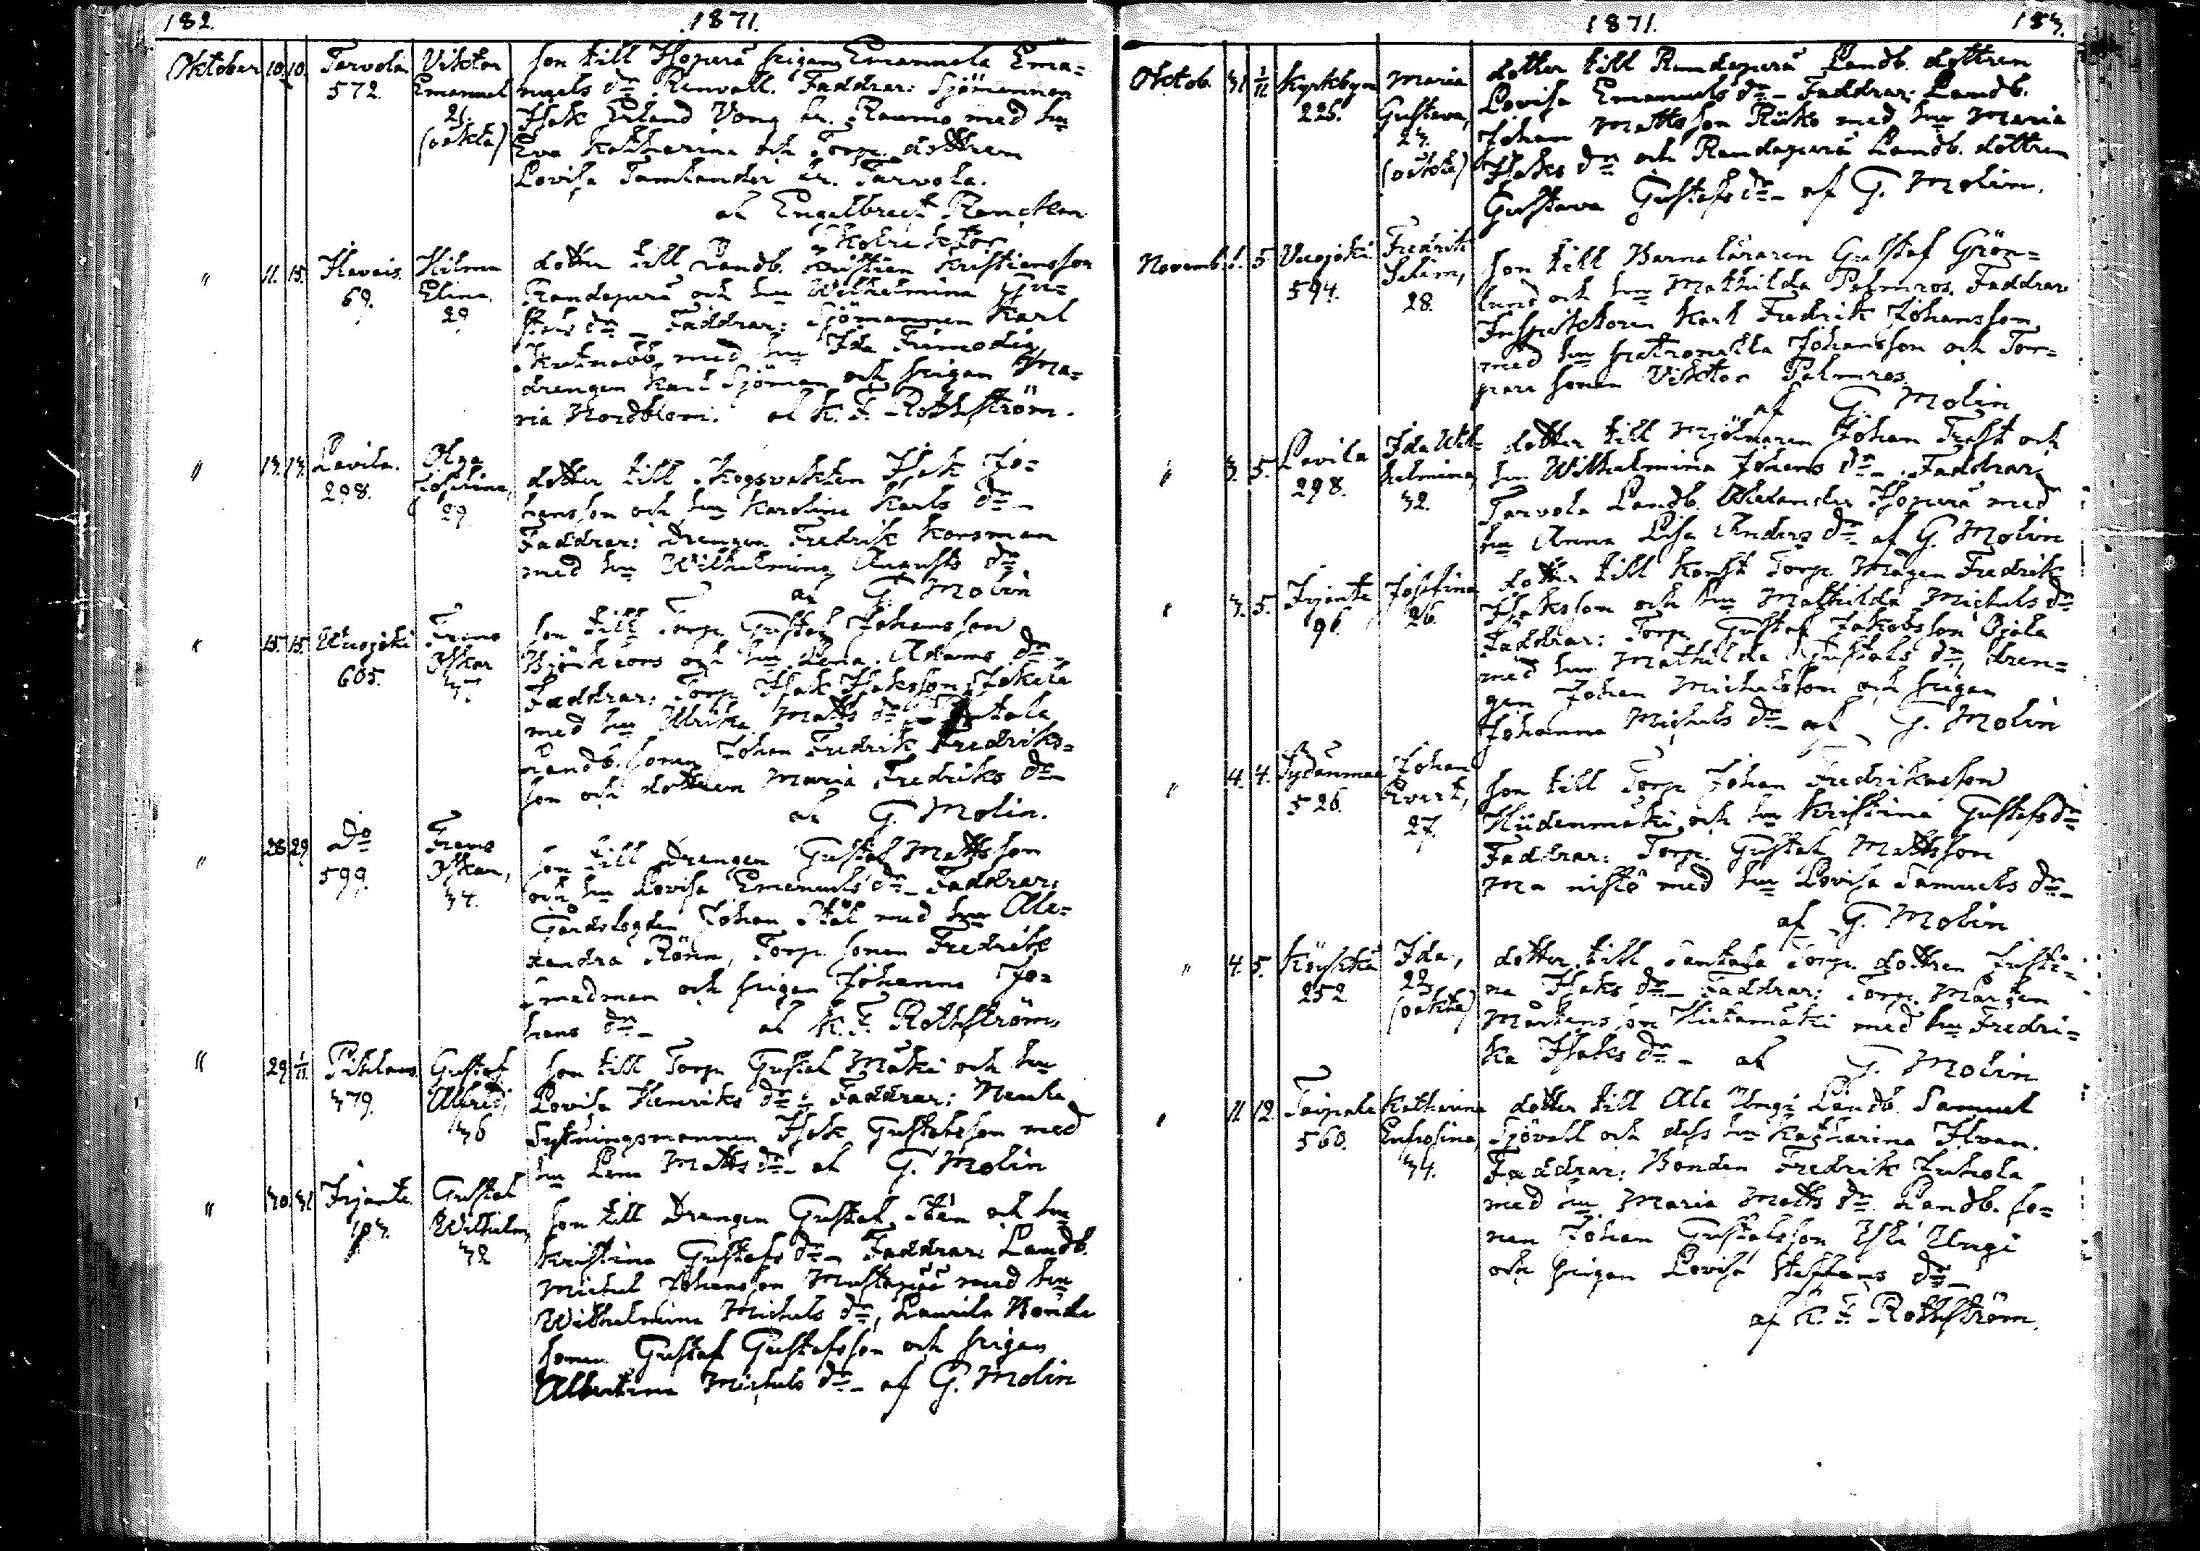 182.
1871.
Oktober 10. 10. Tarvola 572. Viktor Emanuel 21. (oäkta)
son till Isoperä pigan Emanuela Ema=
nuels dr Renvall. Faddrar: Sjömannen
Isak Erland Vong fr. Raumo med hu
Eva Katharina och Torp. dottren
Lovisa Tamlander fr. Tarvola.
af Engelbrect Rancken
" 11. 15. Ilavais. 69. Hilma Elina. 29
dotter till Landb. Kristian Kristiansson
Randaperä och hu Wilhelmina Gu=
stafs dr _ Faddrar: Sjömannen Karl
med hu Ida Frimodig,
drengen Karl Sjöman och pigan Ma=
ria Nordblom. af K. F. Rothström.
" 13. 13. Lavila. 298. Olga Josefina, 29
dotter till Skogsvakten Isak Jo=
hansson och hu Karolina Karls dr _
Faddrar: Drengen Fredrik Korsman
med hu Wilhelmina Augusts dr
af G. Molin
" 15. 15. Wuojoki 605. Frans Oskar 37.
son till Torp. Gustaf Johansson
Björkfors och hu Lena Adams dr _
Faddrar: Torp. Isak Isaksson Jokela
med hu Ulrika Matts dr
Landb. sonen Johan Fredrik Fredriks=
son och dottren Maria Fredriks dr
af G. Molin.
" 28 29 do 599. Frans Oskar, 34.
son till Drengen Gustaf Mattsson
och hu Lovisa Emanuels dr _ Faddrar:
Gårdsfogden Johan Stål med hu Ale=
xandra Rönn, Torp. sonen Fredrik
Smedman och pigan Johanna Jo=
hans dr _ af K. F. Rothström.
" 29 1/11 Pihlaus. 379. Gustaf Alfred, 36
son till Torp. Gustaf Mäki och hu
Lovisa Henriks dr _ Faddrar:
Sytningsmannen Isak Gustafsson med
hu Lena Matts dr _ af G. Molin
" 30 31 Irjante. 103. Gustaf Wilhelm, 32
son till Drengen Gustaf Sten och hu
Kristina Gustafs dr _ Faddrar: Landb.
Michel Johansson Mustapää med hu
Wilhelmina Michels dr, Laurila Bonde
sonen Gustaf Gustafsson och pigan
Albertina Michels dr _ af G. Molin
1871.
183.
Oktob. 31 1/11 Kyrkbyn 225. Maria Gustava, 23. (oäkta)
dotter till Randaperä Landb. dottren
Lovisa Emanuels dr _ Faddrar: Landb.
Johan Mattsson Rüko med hu Maria
Isaks dr och Randaperä Landb. dottren
Gustava Gustafs dr _ af G. Molin.
Novemb. 1. 5 Wuojoki 594. Fredrik Selim, 28.
son till Barnaläraren Gustaf Grön=
lund och hu Mathilda Palmros. Faddrar
Inspektoren Karl Fredrik Johansson
med hu Petronella Johansson och Tor=
pare sonen Viktor Palmros.
af G. Molin
" 3. 5. Lavila 298. Ida Wil= helmina, 32.
dotter till Mjölnaren Johan Trast och
hu Wilhelmina Johans dr _ Faddrar:
Tarvola Landb. Alexander Isoperä med
hu Anna Lisa Anders dr _ af G. Molin
" 3. 5. Irjante 96. Josefina 26.
dotter till Konst Torp. Mågen Fredrik
Isaksson och hu Mathilda Michels dr
Faddrar: Torp. Gustaf Jakobsson Ojala
med hu Mathilda Gustafs dr, Dren=
gen Johan Michelsson och pigan
Johanna Michels dr _ af G. Molin
" 4. 4. Sydänmaa 526. Johan Evert, 27.
son till Torp. Johan Fredriksson
Hiidenmäki och hu Kristina Gustafs dr
Faddrar: Torp. Gustaf Mattsson
med hu Lovisa Samuels dr _
af G. Molin
" 4. 5. Köykkä 252 Ida, 22 (oäkta)
dotter till Santala Torp. dottren Justi=
na Isaks dr _ Faddrar: Torp. Mårten
Mårtensson Hietamäki med hu Fredri=
ka Isaks dr _ af G. Molin
" 11. 12. Taipale 560. Katharina Eufrosina, 34.
dotter till Ala Untgi Landb. Samuel
Sjövall och dess hu Katharina Ilvan.
Faddrar: Bonden Fredrik Juhola
med hu Maria Matts dr Landb. so=
nen Johan Gustafsson Yli Untgi
och pigan Lovisa Staffans dr _
af K. F. Rothström.